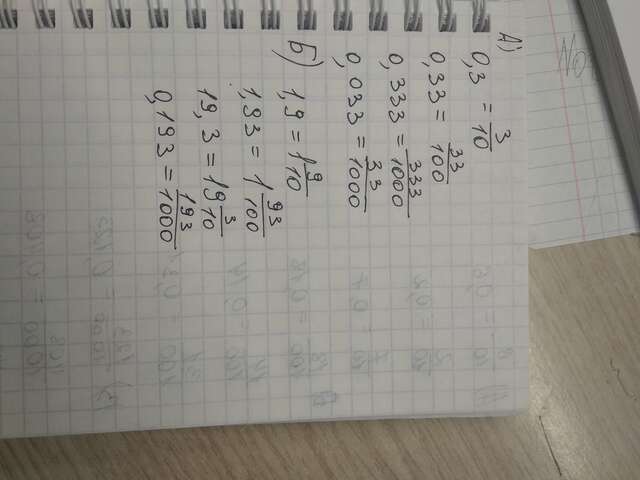 А)
0,3 = 3/10
0,33 = 33/100
0,333 = 333/1000
0,033 = 33/1000
Б)
1,9 = 1 9/10
1,93 = 1 93/100
19,3 = 19 3/10
0,193 = 193/1000